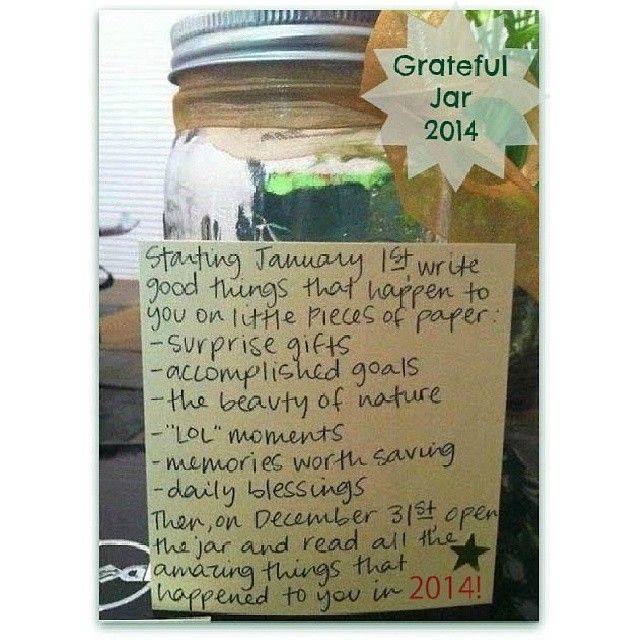 Grateful
Jar
2014
Starting January 1st, write
good things that happen to
you on little pieces of paper:
-surprise gifts
-accomplished goals
-the beauty of nature
-"LOL" moments
-memories worth saving
-daily blessings
Then, on December 31st, open
the jar and read all the
amazing things that
happened to you in 2014!